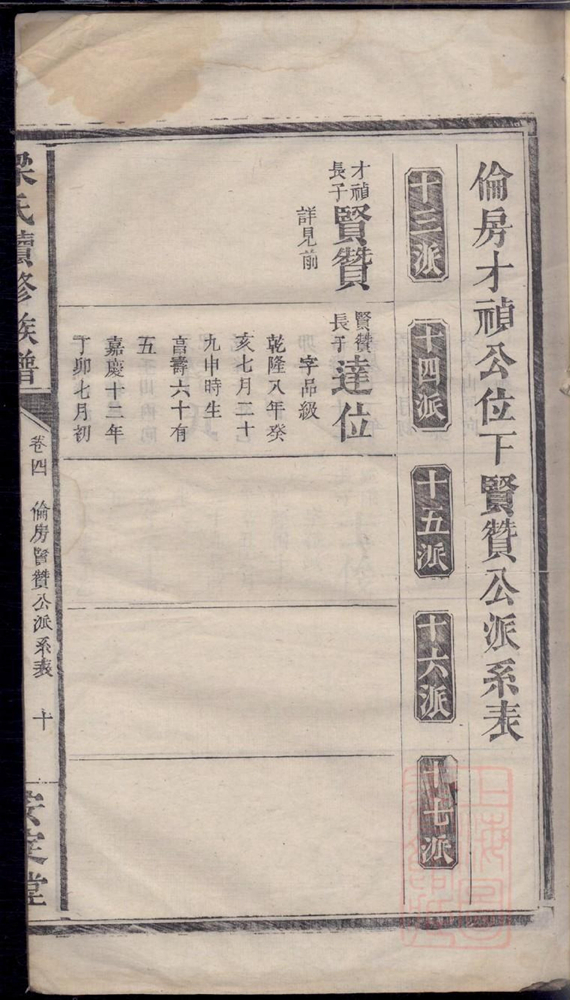 倫房才禎公位下賢贊公派系表
十三派
十四派
十五派
十六派
十七派
才禎
長子
賢贊
詳見前
賢贊
長子
達位
字 級
乾隆八年癸
亥七月二十
九申時生
享壽六十有
五
嘉慶十二年
丁卯七月初
梁氏續修族譜
卷四
倫房賢贊公派系表
十
安定堂